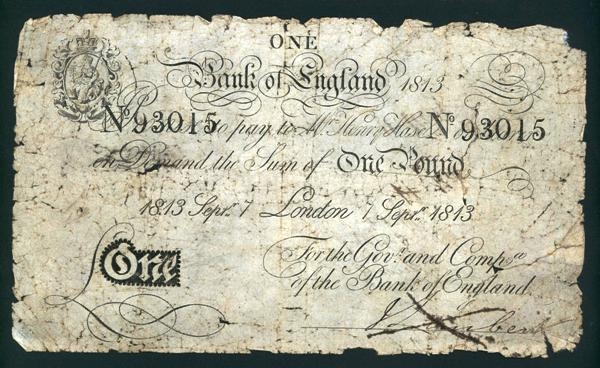 ONE
Bank of England 1813
No 93015 to pay to Mr. Henry Hase No 93015
on Demand the Sum of One Pound
1813 Sepr. 7 London 7 Sepr. 1813
For the Govr. and Compa.
of the Bank of England.
One